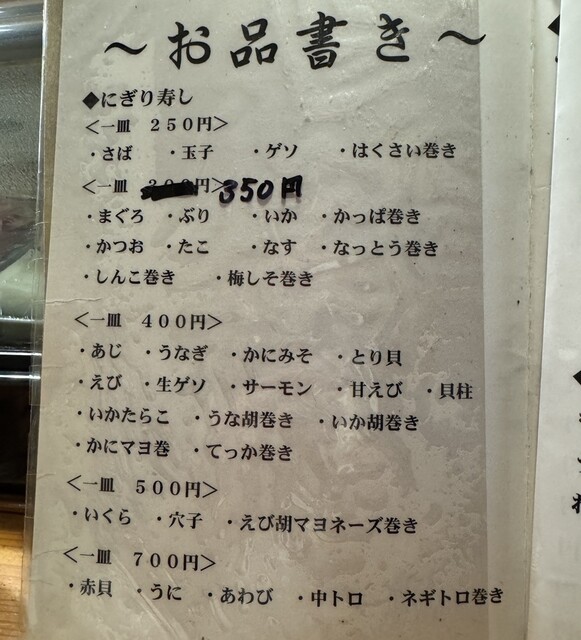 ～お品書き～
◆にぎり寿し
＜一皿　２５０円＞
・さば　・玉子　・ゲソ　・はくさい巻き
＜一皿　３００円＞350円
・まぐろ　・ぶり　・いか　・かっぱ巻き
・かつお　・たこ　・なす　・なっとう巻き
・しんこ巻き　・梅しそ巻き
＜一皿　４００円＞
・あじ　・うなぎ　・かにみそ　・とり貝
・えび　・生ゲソ　・サーモン　・甘えび　・貝柱
・いかたらこ　・うな胡巻き　・いか胡巻き
・かにマヨ巻　・てっか巻き
＜一皿　５００円＞
・いくら　・穴子　・えび胡マヨネーズ巻き
＜一皿　７００円＞
・赤貝　・うに　・あわび　・中トロ　・ネギトロ巻き